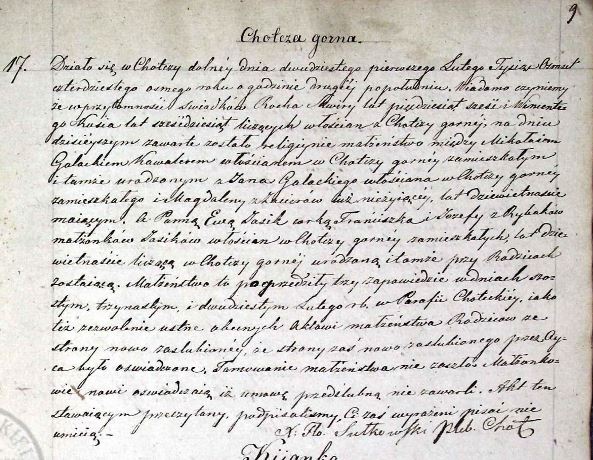 9
Chotcza gorna.
17. Działo się w Chotczy dolnéy dnia dwudziestego pierwszego Lutego Tysiąc Osmset
czterdziestego osmego roku o godzinie drugiéj popołudniu. Wiadomo czyniemy
że w przytomności Swiadków Rocha Kwiry, lat pięćdziesiąt sześć i Wincente
go Kusia lat sześdziesiąt liczących włościan z Chotczy gornéj, na dniu
dzisieyszym zawarte zostało religijne małżeństwo między Mikołaiem
Gałackiem Kawalerem włościanem w Chotczy gornéy zamieszkałym
i tamże urodzonym z Jana Gałackiego włościana w Chotczy gornéy
zamieszkałego i Magdaleny z już nieżyiącéy, lat dziewietnaście
maiącym, A Panną Ewą Jasik corką Franciszka i Jozefy z Rybaków
małżonków Jasików włościan w Chotczy gornéy zamieszkałych, lat dzie
wietnaście liczącą w Chotczy gornéj urodzoną i tamże przy Rodzicach
zostaiącą. Małżeństwo to poprzedziły trzy zapowiedzie w dniach szo
stym, trzynastym, i dwudziestym Lutego rb. w Parafii Choteckiéy, iako
też zezwolenie ustne obecnych Aktowi małżeństwa Rodziców ze
strony nowo zaslubionéy, ze strony zaś nowo zaslubionego przez Oy
ca było oswiadczone, Tamowanie małżeństwa nie zaszło. Małżonko
wie nowi oswiadczaią iż umowy przedślubnéy nie zawarli. Akt ten
stawaiącym przeczytany, podpisaliśmy, Ci zaś wyrażeni pisać nie
umieią.-
X. Flo. Sutkowski Pleb. Chot.
Kijanka